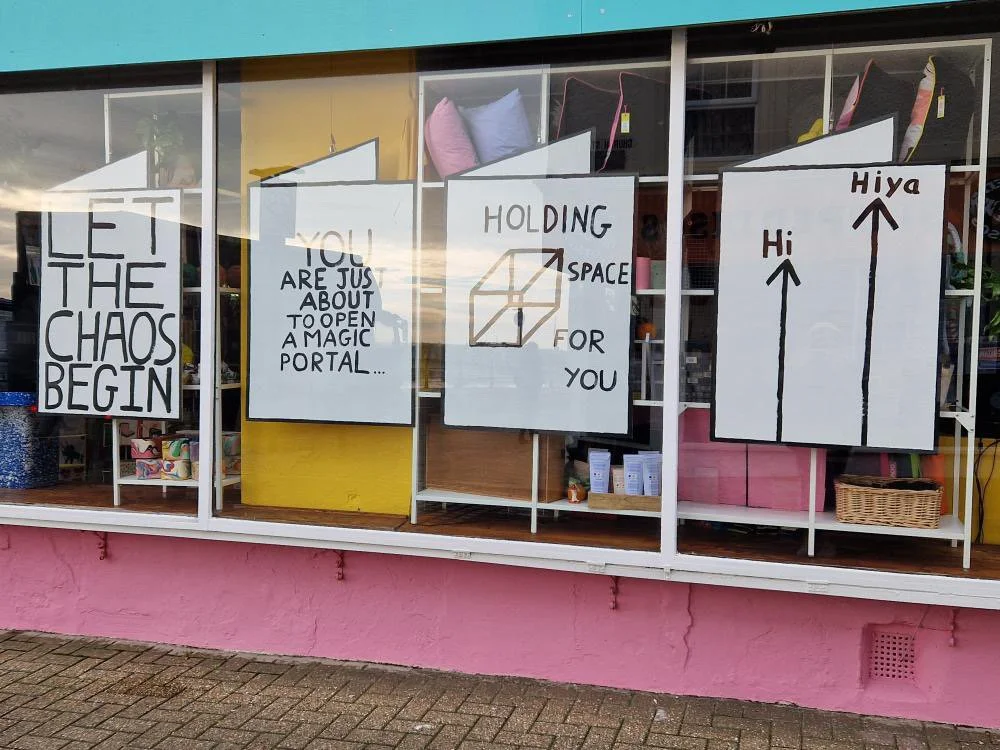 LET
THE
CHAOS
BEGIN
YOU
ARE JUST
ABOUT
TO OPEN
A MAGIC
PORTAL...
HOLDING
SPACE
FOR
YOU
Hiya
Hi